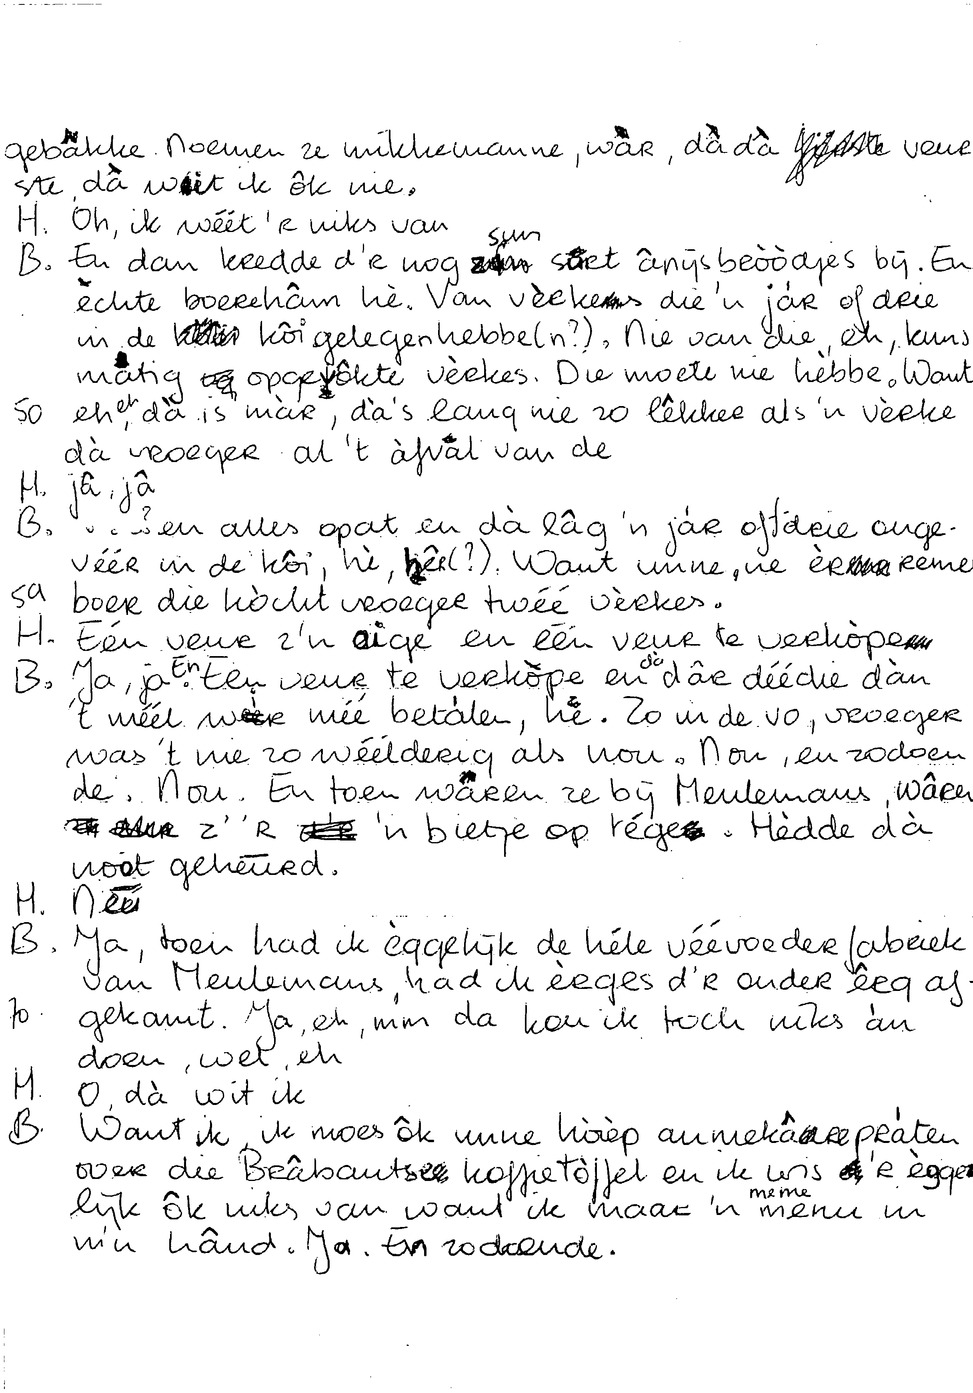 gebâkke. Noemen ze mikkemanne, wàr, dà dà veur
ste, dà wit ik ôk nie.
H. Oh, ik wéét 'r niks van
B. En dan kredde d'r nog sun sort ânijsbròòdjes bij. En
èchte boerehâm hè. Van vèrkes die 'n jár of drie
in de kôi gelegen hebbe(n?). Nie van die, eh, kuns
mátig opgefôkte vèrkes. Die moete nie hèbbe. Want
50 eh, eh dà is màr, dà's lang nie zo lêkker als 'n vèrke
dà vroeger al 't àfvàl van de
H. jâ, jâ
B. ...? en alles opat en dà lâg 'n jár of drie onge-
véér in de kôi, hè, hêr(?). Want unne, ne èrreme
5a boer die kòcht vroeger twéé vèrkes.
H. Eén veur z'n aige en één veur te verkòpe
B. Ja, ja. En Een veur te verkòpe en dà dâr déédie dàn
't méél wir méé betálen, hè. Zo in de vo, vroeger
was 't nie zo wéélderig als nou. Nou, en zodoen
de. Nou. En toen wâren ze bij Meulemans, wâren
z' 'r 'n bietje op tége. Hèdde dà
nooit geheurd.
H. Néé
B. Ja, toen had ik èggelijk de héle véévoederfabriek
van Meulemans, had ik èrges d'r onder êrg af-
70. gekamt. Ja, eh, mm da kon ik toch niks àn
doen, wet, eh
H. O, dà wit ik
B. Want ik, ik moes ôk unne hòrèp anmekâre práten
over die Brâbantse koffietòffel en ik wis 'r ègge
lijk ôk niks van want ik maar 'n meme menu in
m'n hând. Ja. En zodoende.